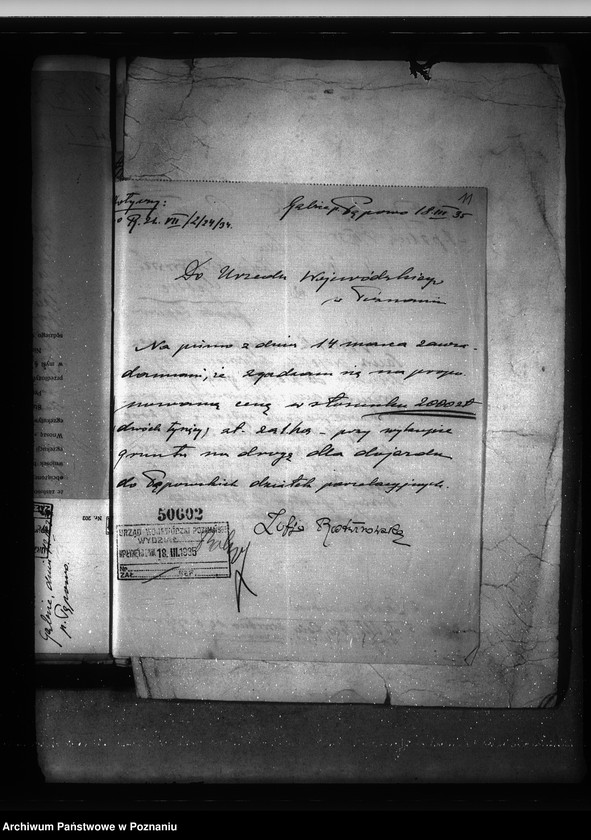 11
R. Ł. VII /2/24/34.
18 III 35
Do Urzedu Wojewódzkiego
w Poznaniu
Na pismo z dnia 14 marca zawia-
damiam, że zgadzam się na propo-
nowaną cenę w stosunku 2000 zł
(dwóch tysięcy) zł. za ha. - przy wykupie
gruntu na drogę dla dojazdu
do Pępowskich działek parcelacyjnych.
Zofja
50602
URZĄD WOJEWÓDZKI POZNAŃSKI
WYDZIAŁ
WPŁYNĘŁO DNIA 18. III. 1935
Nr.
ZAŁ. REP.
Nr. 202
p. Pępowo.
Archiwum Państwowe w Poznaniu